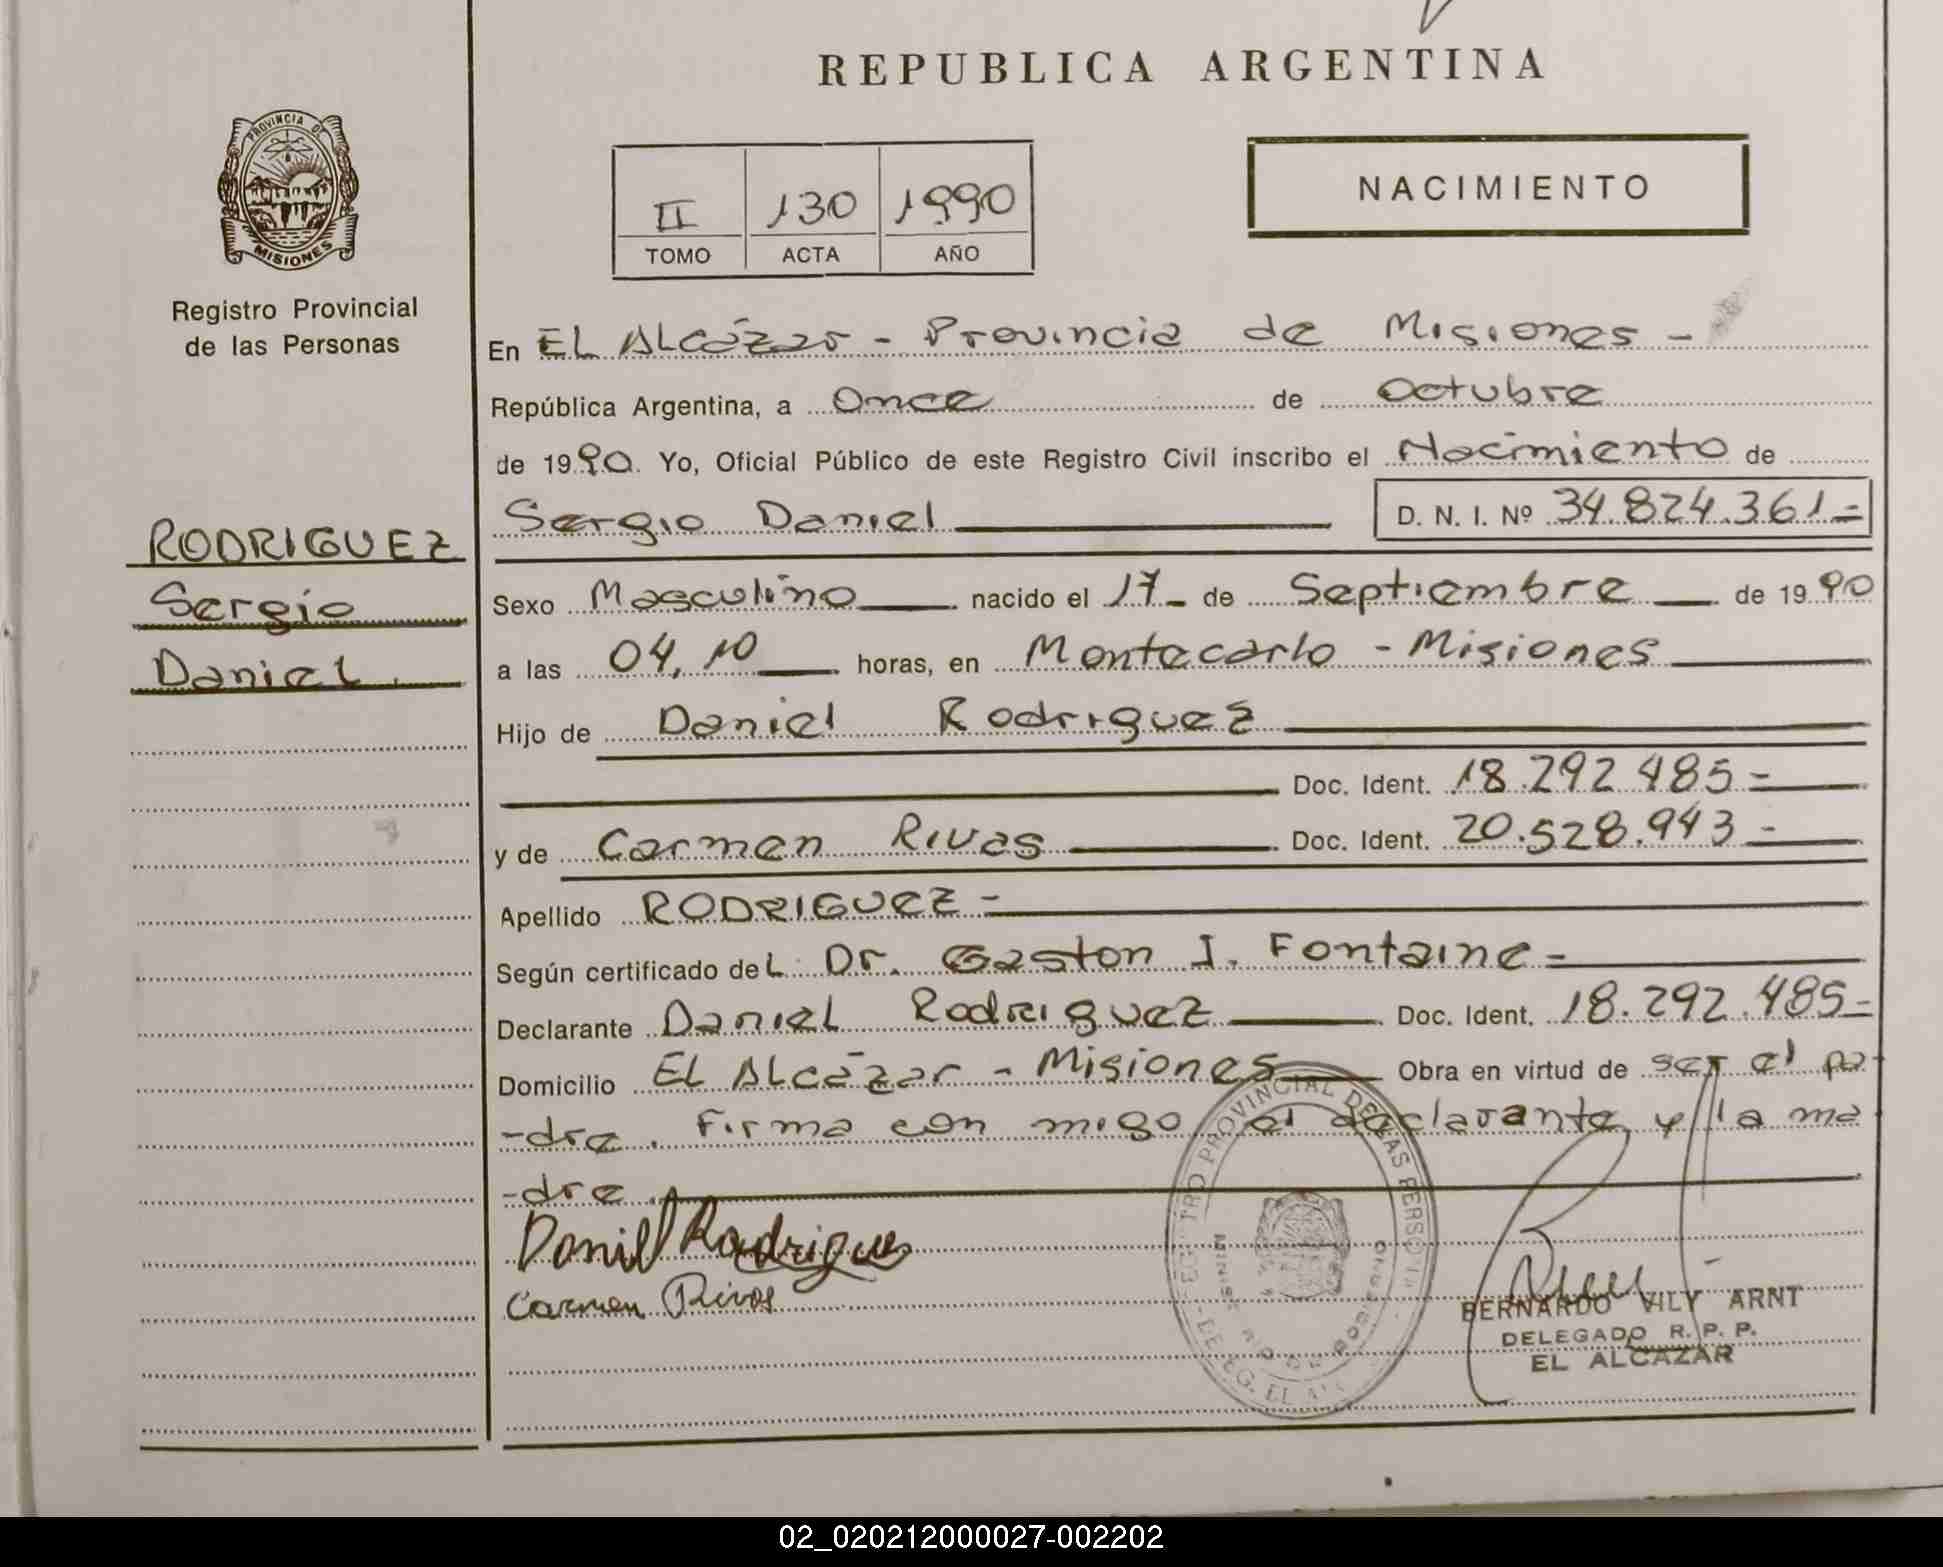 REPUBLICA ARGENTINA
PROVINCIA DE
MISIONES
Registro Provincial
de las Personas
RODRIGUEZ
Sergio
Daniel.
II 130 1990
TOMO ACTA AÑO
NACIMIENTO
En EL ALcázar - Provincia de Misiones -
República Argentina, a Once de Octubre
de 1990. Yo, Oficial Público de este Registro Civil inscribo el Nacimiento de
Sergio Daniel D. N. I. Nº 34.824.361=
Sexo Masculino nacido el 17 de Septiembre de 1990
a las 04,10 horas, en Montecarlo - Misiones
Hijo de Daniel Rodriguez
Doc. Ident. 18.292.485=
y de Carmen Rivas Doc. Ident. 20.528.943=
Apellido RODRIGUEZ -
Según certificado deL Dr. Gaston J. Fontaine=
Declarante DanieL Rodriguez Doc. Ident. 18.292.485=
Domicilio EL ALcázar - Misiones Obra en virtud de ser el pa-
-dre. Firma con migo el declarante y la ma-
-dre.
Daniel Rodrigues
Carmen Rivas
PROVINCIAL DE LAS PERSONAS
DELEG. EL
BERNARDO VILY ARNT
DELEGADO R. P. P.
EL ALCAZAR
02_020212000027-002202